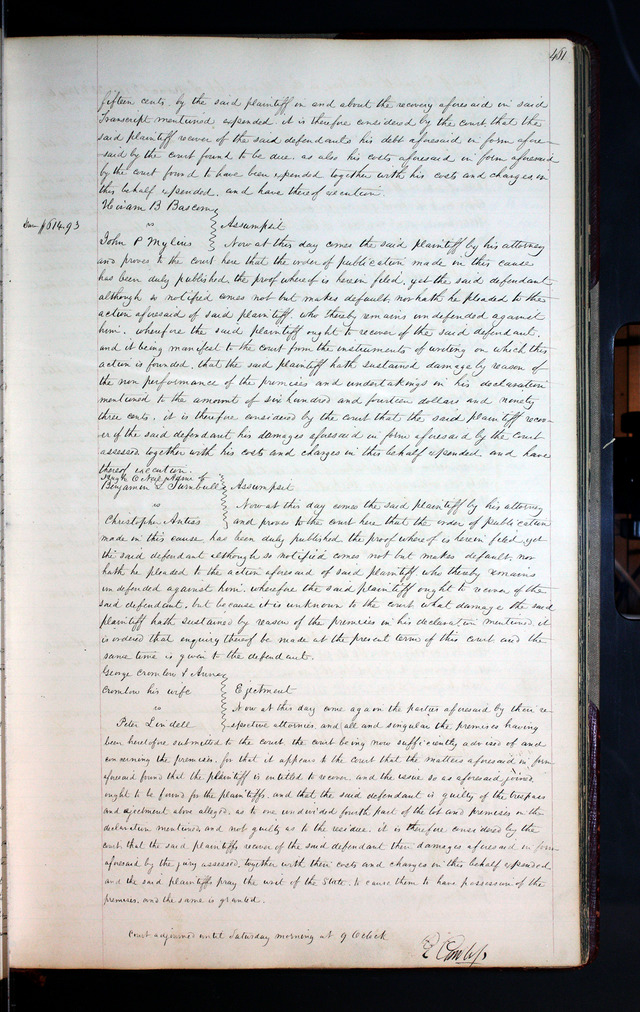 481
fifteen cents, by the said plaintiff in and about the recovery aforesaid in said
Transcript mentioned expended. it is therefore considered by the court that the
said plaintiff recover of the said defendants his debt aforesaid in form afore-
-said by the court found to be due, as also his costs aforesaid in form aforesaid
by the court found to have been expended together with his costs and charges in
this behalf expended. and have thereof execution.
Hiram B Bascom
vs Assumpsit
Dam $614.93
John P Mylius Now at this day comes the said plaintiff by his attorney
and proves to the court here that the order of publication made in this cause
has been duly published, the proof whereof is herein filed, yet the said defendant
although so notified comes not but makes default, nor hath he pleaded to the
action aforesaid of said plaintiff, who thereby remains undefended against
him. wherefore the said plaintiff ought to recover of the said defendant,
and it being manifest to the court from the instruments of writing on which this
action is founded, that the said plaintiff hath sustained damage by reason of
the non performance of the promises and undertakings in his declaration
mentioned to the amount of six hundred and fourteen dollars and ninety
three cents, it is therefore considered by the court that the said plaintiff recov-
er of the said defendant his damages aforesaid in form aforesaid by the court
assessed together with his costs and charges in this behalf expended, and have
thereof execution.
Hugh O Neil
Benjamin L Turnbull Assumpsit
vs Now at this day comes the said plaintiff by his attorney
Christopher Anties and proves to the court here that the order of publication
made in this cause has been duly published the proof whereof is herein filed, yet
the said defendant although so notified comes not but makes default, nor
hath he pleaded to the action aforesaid of said plaintiff who thereby remains
undefended against him. wherefore the said plaintiff ought to recover of the
said defendant, but because it is unknown to the court what damage the said
plaintiff hath sustained by reason of the premises in his declaration mentioned, it
is ordered that enquiry thereof be made at the present term of this court and the
same time is given to the defendant.
George Cromlow &
Cromlow his wife Ejectment
vs Now at this day come again the parties aforesaid by their re-
Peter Lindell spective attornies, and all and singular the premises having
been heretofore submitted to the court, the court being now sufficiently advised of and
concerning the premises. for that it appears to the court that the matters aforesaid in form
aforesaid found that the plaintiff is entitled to recover, and the issue so as aforesaid joined
ought to be found for the plaintiffs, and that the said defendant is guilty of the trespass
and ejectment above alleged, as to one undivided fourth part of the lot and premises in the
declaration mentioned and not guilty as to the residue. it is therefore considered by the
court that the said plaintiffs recover of the said defendant their damages aforesaid in form
aforesaid by the jury assessed, together with their costs and charges in this behalf expended
and the said plaintiffs pray the writ of the State, to cause them to have possession of the
premises, and the same is granted.
Court adjourned until Saturday morning at 9 OClock